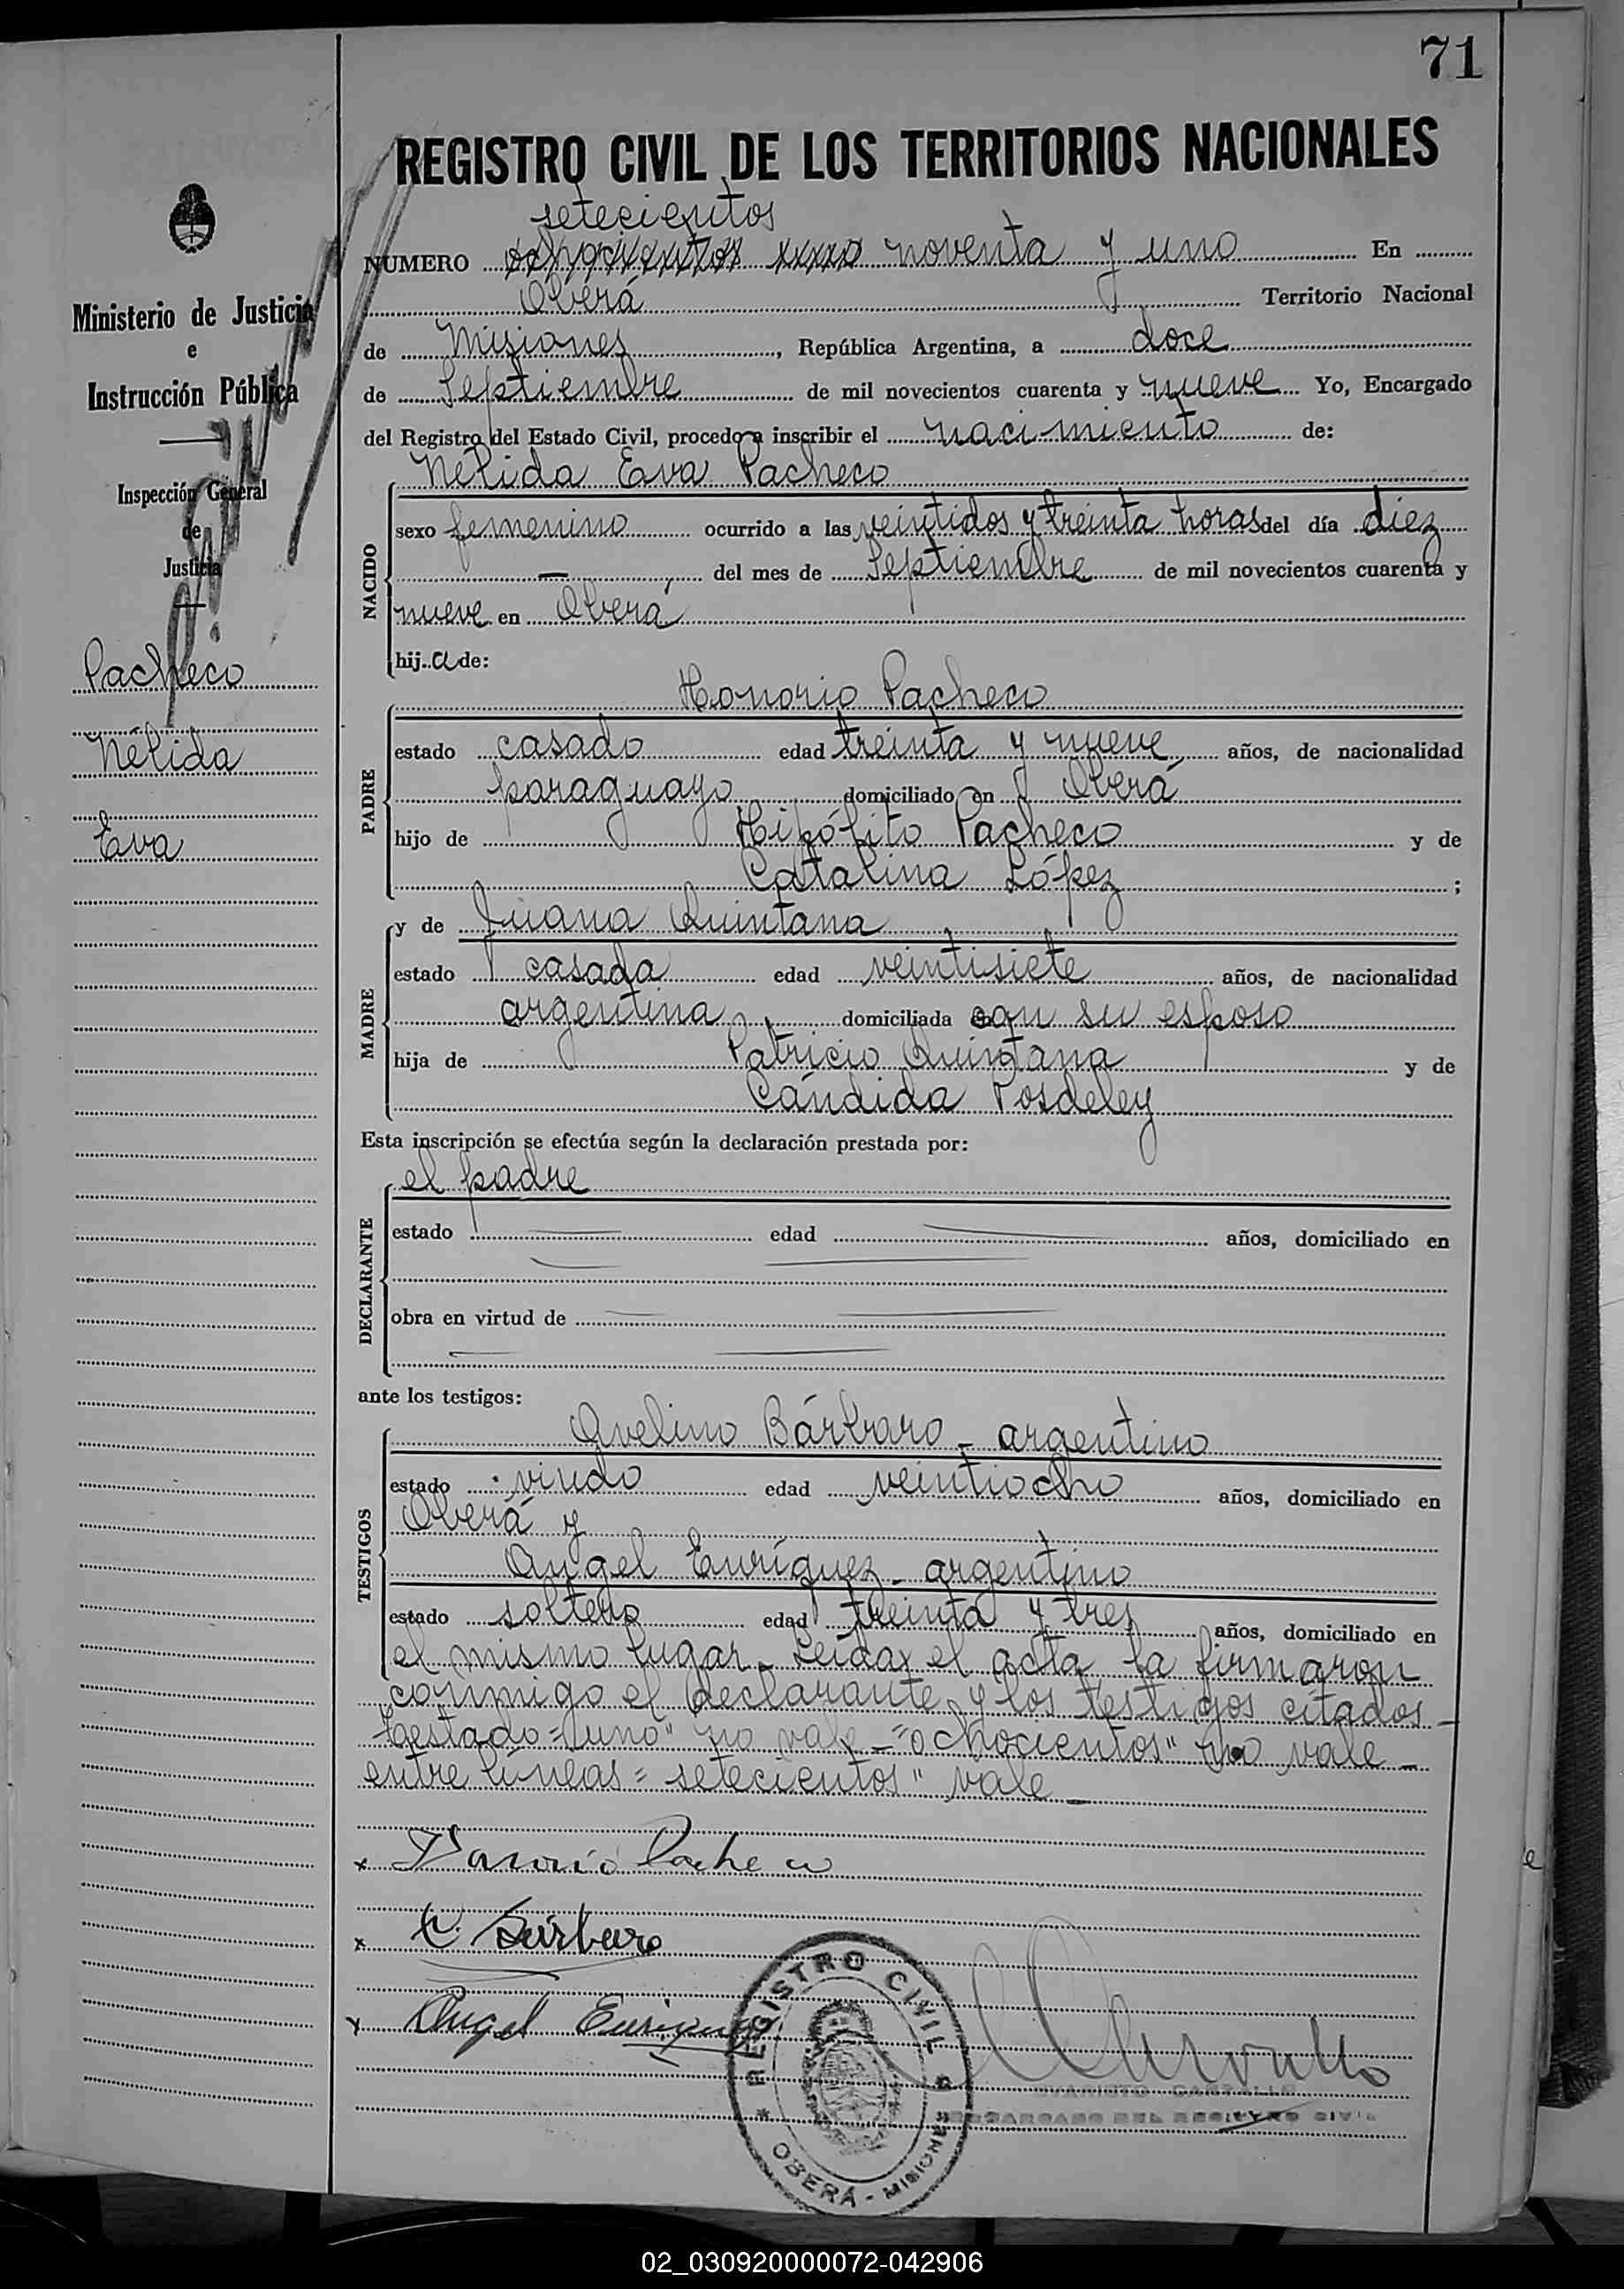 71
REGISTRO CIVIL DE LOS TERRITORIOS NACIONALES
setecientos
NUMERO ochocientos noventa y uno En
Oberá Territorio Nacional
de Misiones, República Argentina, a doce
de Septiembre de mil novecientos cuarenta y nueve Yo, Encargado
del Registro del Estado Civil, procedo a inscribir el nacimiento de:
Nélida Eva Pacheco
NACIDO
sexo femenino ocurrido a las veintidos y treinta horas del día diez
— del mes de Septiembre de mil novecientos cuarenta y
nueve en Oberá
hija de:
Honorio Pacheco
PADRE
estado casado edad treinta y nueve años, de nacionalidad
paraguayo domiciliado en Oberá
hijo de Hipólito Pacheco y de
Catalina López ;
y de Juana Quintana
MADRE
estado casada edad veintisiete años, de nacionalidad
argentina domiciliada con su esposo
hija de Patricio Quintana y de
Cándida Posdeley
Esta inscripción se efectúa según la declaración prestada por:
el padre
DECLARANTE
estado edad años, domiciliado en
obra en virtud de
ante los testigos:
Avelino Bárbaro - argentino
TESTIGOS
estado viudo edad veintiocho años, domiciliado en
Oberá y
Angel Enríquez - argentino
estado soltero edad treinta y tres años, domiciliado en
el mismo lugar - Leída el acta la firmaron
conmigo el declarante y los testigos citados -
Testado = "uno" no vale - = "ochocientos" no vale -
entre líneas = setecientos" vale -
x Pacheco
x Bárbaro
x Angel Enriquez
REGISTRO CIVIL
OBERÁ - MISIONES
ENCARGADO DEL REGISTRO CIVIL
Ministerio de Justicia
e
Instrucción Pública
Inspección General
de
Justicia
Pacheco
Nélida
Eva
02_030920000072-042906